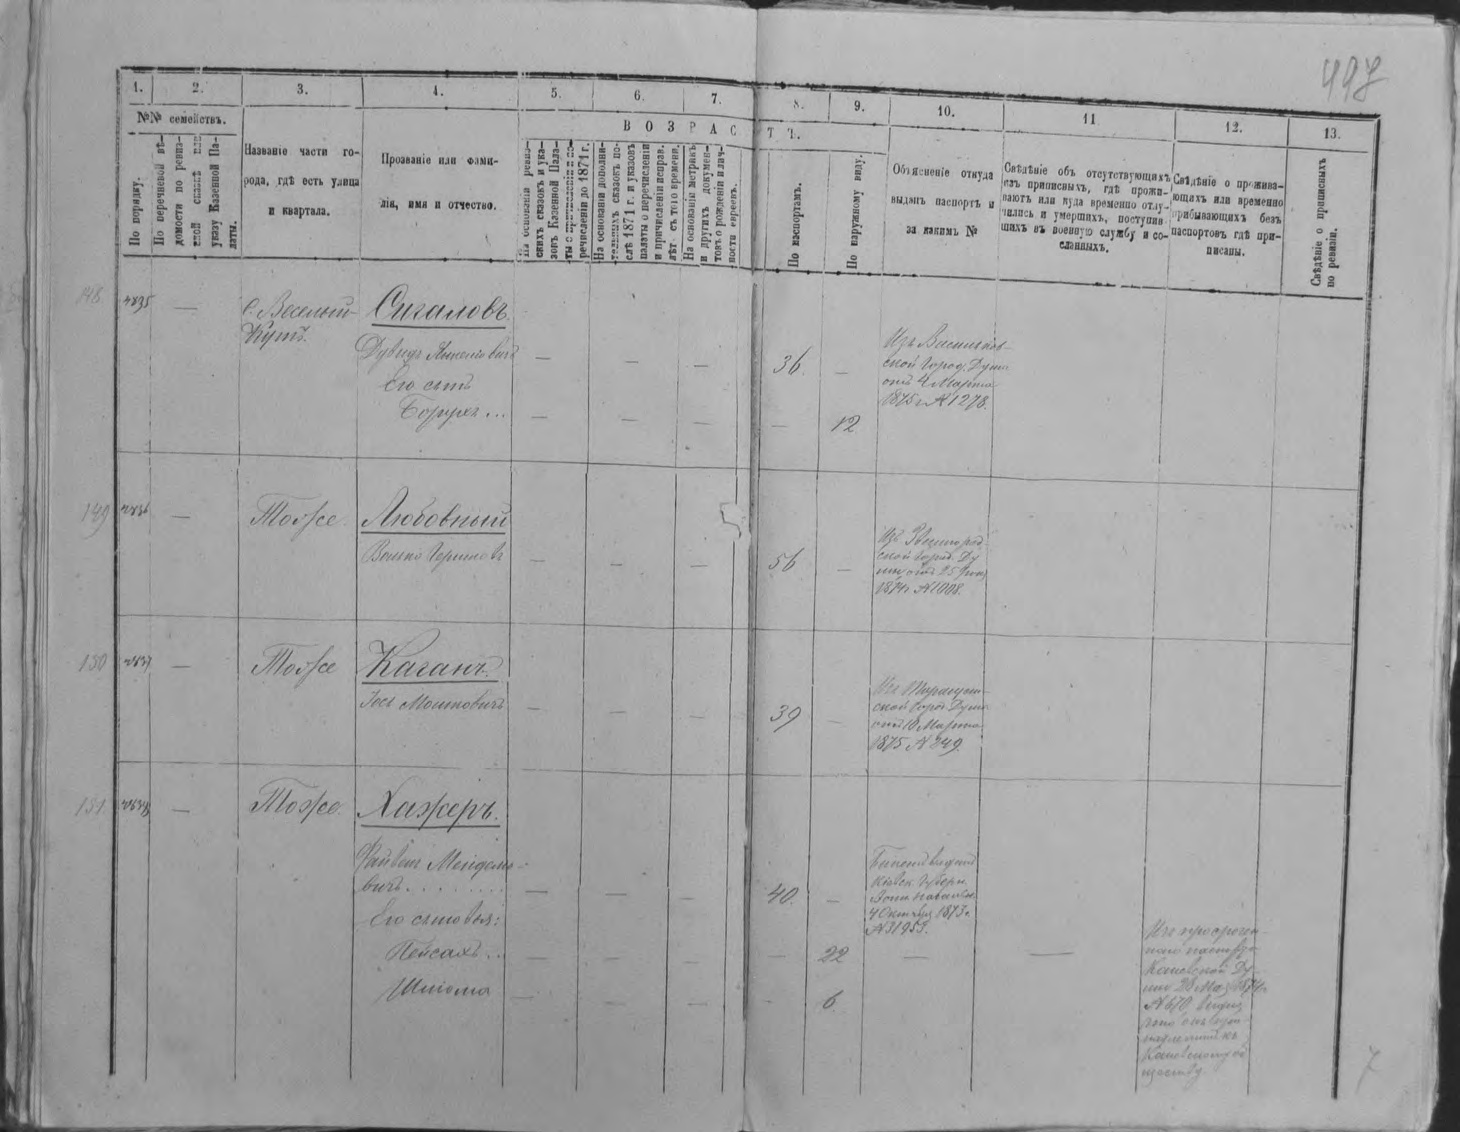 497
1.
2.
3.
4.
5.
6.
7.
8.
9.
10.
11
12.
13.
№№ семействъ.
По порядку.
По перечневой вѣ-
домости по ревиз-
ской сказкѣ или
указу Казенной Па-
латы.
Названіе части го-
рода, гдѣ есть улица
и квартала.
Прозваніе или фами-
лія, имя и отчество.
ВОЗРАСТЪ.
На основаніи ревиз-
скихъ сказокъ и ука-
зовъ Казенной Пала-
ты о причисленіи и пе-
речисленіи до 1871 г.
На основаніи дополни-
тельныхъ сказокъ по-
слѣ 1871 г. и указовъ
палаты о перечисленіи
и причисленіи исправ.
лѣт. съ того времени.
На основаніи метрикъ
и другихъ докумен-
товъ о рожденіи и лич-
ности евреевъ.
По паспортамъ.
По наружному виду.
Объясненіе откуда
выданъ паспортъ и
за какимъ №
Свѣдѣніе объ отсутствующихъ
изъ приписныхъ, гдѣ прожи-
ваютъ или куда временно отлу-
чились и умершихъ, поступив-
шихъ въ военную службу и со-
сланныхъ.
Свѣдѣніе о прожива-
ющихъ или временно
прибывающихъ безъ
паспортовъ гдѣ при-
писаны.
Свѣдѣніе о приписныхъ
по ревизіи.
148
4835
—
с. Веселый
Кутъ.
Сигаловъ.
Дувидъ Янкелевичъ
— — —
36.
—
Его сынъ
Борухъ ...
— — — —
12
Изъ Васильков-
ской Город. Думы
отъ 4 Марта
1875 г. № 1278.
149
—
Тоже.
Любовный
— — —
56
—
Изъ Звенигород-
ской Город. Ду-
мы отъ 25
1874 г. № 1008.
150
—
Тоже
Каганъ.
Іосъ Мошковичъ
— — —
39
—
ской Город. Думы
отъ 10 Марта
1875 № 249.
151.
—
Тоже.
Хажеръ.
Файвель Мендель-
вичъ . . . . . . . .
— — —
40.
—
Билетъ выдан.
Кіевск. Губерн.
4 Октября 1873 г.
№ 31953.
Его сыновья:
Пейсахъ ..
— — — —
22
— —
Шлома
— — — —
6
Изъ просрочен-
наго паспорта
Каневской Ду-
мы 28 Мая 1874 г.
№ 670
Каневскому об-
ществу.
7